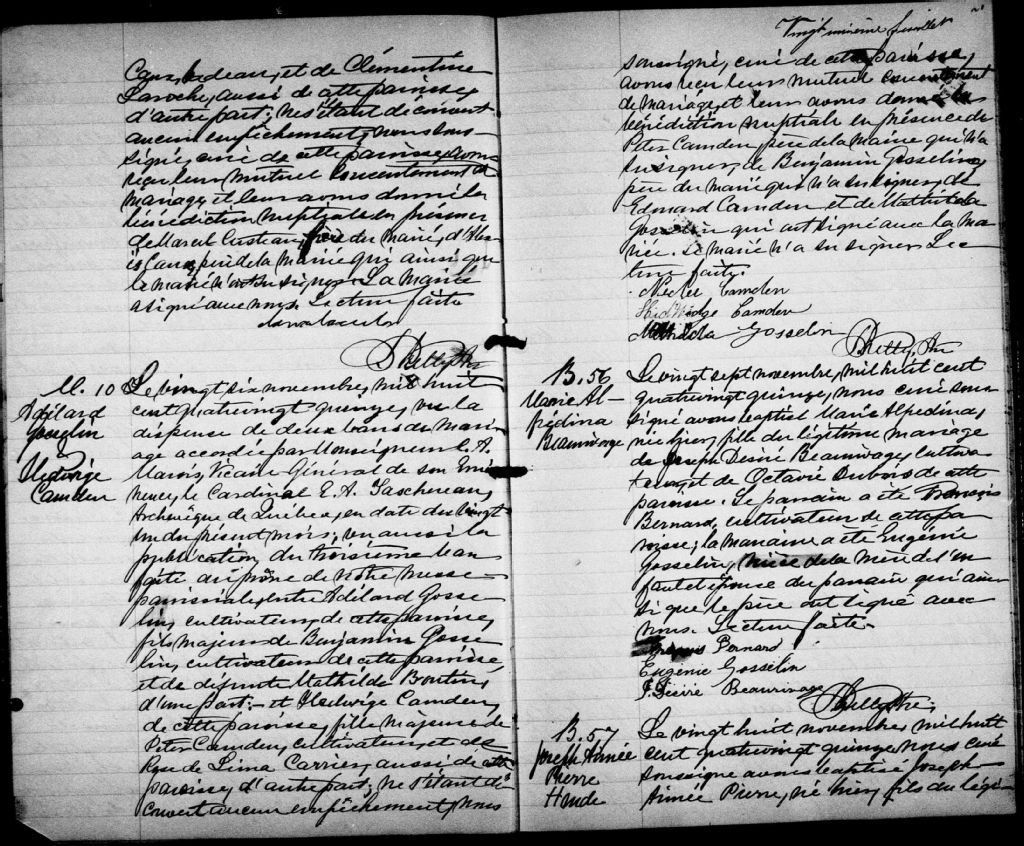 Caux, bedeau, et de Clémentine
Laroche, aussi de cette paroisse,
d'autre part; ne s'étant découvert
aucun empêchement, nous sous-
signé, curé de cette paroisse, avons
reçu leur mutuel consentement de
mariage, et leur avons donné la
bénédiction nuptiale en présence
de Marcel frère du marié, d'
Caux, père de la mariée qui ainsi que
le marié n'ont su signer. La mariée
a signé avec nous. Lecture faite
M. 10
Adélard
Gosselin
&
Hedwige
Camden
Le vingt six novembre, mil huit
cent quatrevingt quinze, vu la
dispense de deux bans de mari-
age accordée par Monseigneur C. A.
Marois, Vicaire Général de son Emi-
nence, le Cardinal E. A. Taschereau,
Archevêque de Québec, en date du vingt
un du présent mois; vu aussi la
publication du troisième ban
faite au prône de notre messe
paroissiale, entre Adélard Gosse-
lin, cultivateur, de cette paroisse,
fils majeur de Benjamin Gosse-
lin, cultivateur, de cette paroisse,
et de défunte Mathilde Boutin,
d'une part;- et Hedwige Camden,
de cette paroisse, fille majeure de
Peter Camden, cultivateur, et de
Rose de Lima Carrier, aussi de cette
paroisse, d'autre part; ne s'étant dé-
couvert aucun empêchement, nous
Vingt unième feuillet
soussigné, curé de cette paroisse,
avons reçu leur mutuel consentement
de mariage, et leur avons donné la
bénédiction nuptiale en présence de
Peter Camden, père de la mariée qui n'a
su signer, de Benjamin Gosselin,
père du marié qui n'a su signer, de
Edouard Camden et de Mathilda
Gosselin qui ont signé avec la ma-
riée. Le marié n'a su signer. Lec-
ture faite.
Camden
Hedwidge Camden
Mathilda Gosselin
B. 56
Marie Al-
frédina
Beaurivage
Le vingt sept novembre, mil huit cent
quatrevingt quinze, nous curé sous-
signé avons baptisé Marie Alfrédina,
née hier, fille du légitime mariage
de Joseph Désiré Beaurivage, cultiva-
teur, et de Octavie Dubois de cette
paroisse. Le parrain a été François
Bernard, cultivateur de cette pa-
roisse; la marraine a été Eugénie
Gosselin, de la mère de l'en-
fant et épouse du parrain qui ain-
si que le père ont signé avec
nous. Lecture faite.
François Bernard
Eugénie Gosselin
Beaurivage
B. 57
Joseph Aimée
Pierre
Le vingt huit novembre, mil huit
cent quatrevingt quinze, nous curé
soussigné avons baptisé Joseph
Aimée Pierre, né hier, fils du légi-